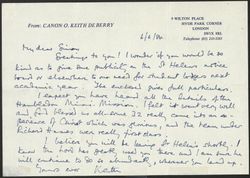 From: CANON O. KEITH DE BERRY
9 WILTON PLACE
HYDE PARK CORNER
LONDON
SW1X 8RL
My dear Simon
Greetings to you! I wonder if you would be so
kind as to give some publicity on the St Helen's notice
board or elsewhere to our need for student lodgers next
academic year. The enclosed gives full particulars.
I expect you have heard all the details of the
Hambledon Mini Mission. I felt it went very well
and for Phread us all. came into an ex-
perience of Christ which was glorious, and the team under
Richard Hawes were really first class.
I believe you will be leaving St Helen's shortly. I
know the Lord has greatly used you there and I am sure he
will continue to do so abundantly, wherever you land up.
Yours ever
Keith